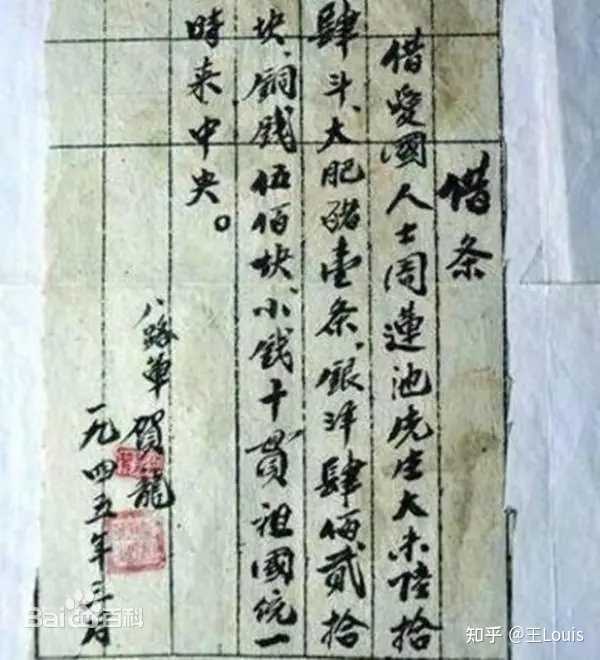 借条
借愛國人士周蓮池先生大米陸拾
肆斗、大肥猪壹条、银洋肆佰貳拾
块、銅钱伍佰块、小钱十贯祖國統一
時来中央。
八路軍 賀龍
一九四五年三月
Bai百科
知乎 @王Louis